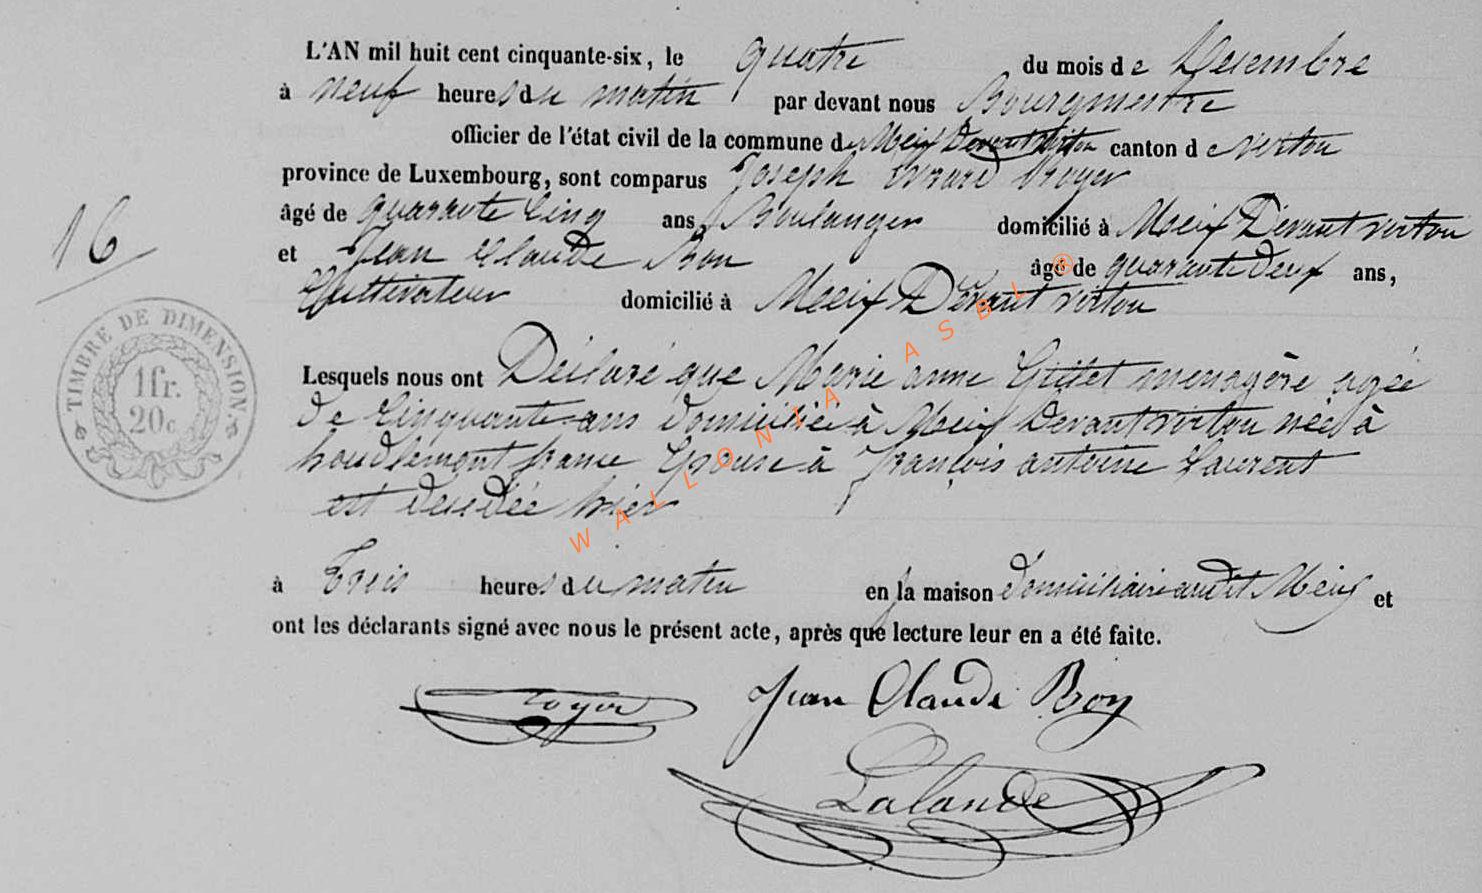 L'AN mil huit cent cinquante-six, le quatre du mois de Decembre
à neuf heures du matin par devant nous Bourgmestre
officier de l'état civil de la commune de Meix Devant virton canton de virton
province de Luxembourg, sont comparus Joseph
âgé de quarante Cinq ans, Boulanger domicilié à Meix Devant virton
et Jean Claude âgé de quarante deux ans,
Cultivateur domicilié à Meix Devant virton
16
TIMBRE DE DIMENSION.
1fr.
20c
Lesquels nous ont Déclaré que Marie anne menagère agée
de Cinquante ans domiciliée à Meix Devant virton née à
houdlemont france Epouse à françois antoine Laurent
est decedée hier
à Trois heures du matin en la maison domiciliaire audit Meix et
ont les déclarants signé avec nous le présent acte, après que lecture leur en a été faite.
Jean Claude Bon
Lalande
WALLONIA ASBL ®